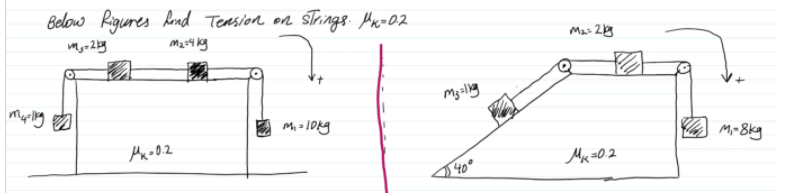 Below Figures find Tension on strings. μK=0.2
m3=2kg
m2=4kg
+
m4=1kg
m1=10kg
μK=0.2
m2=2kg
+
m3=1kg
m1=8kg
μK=0.2
40°